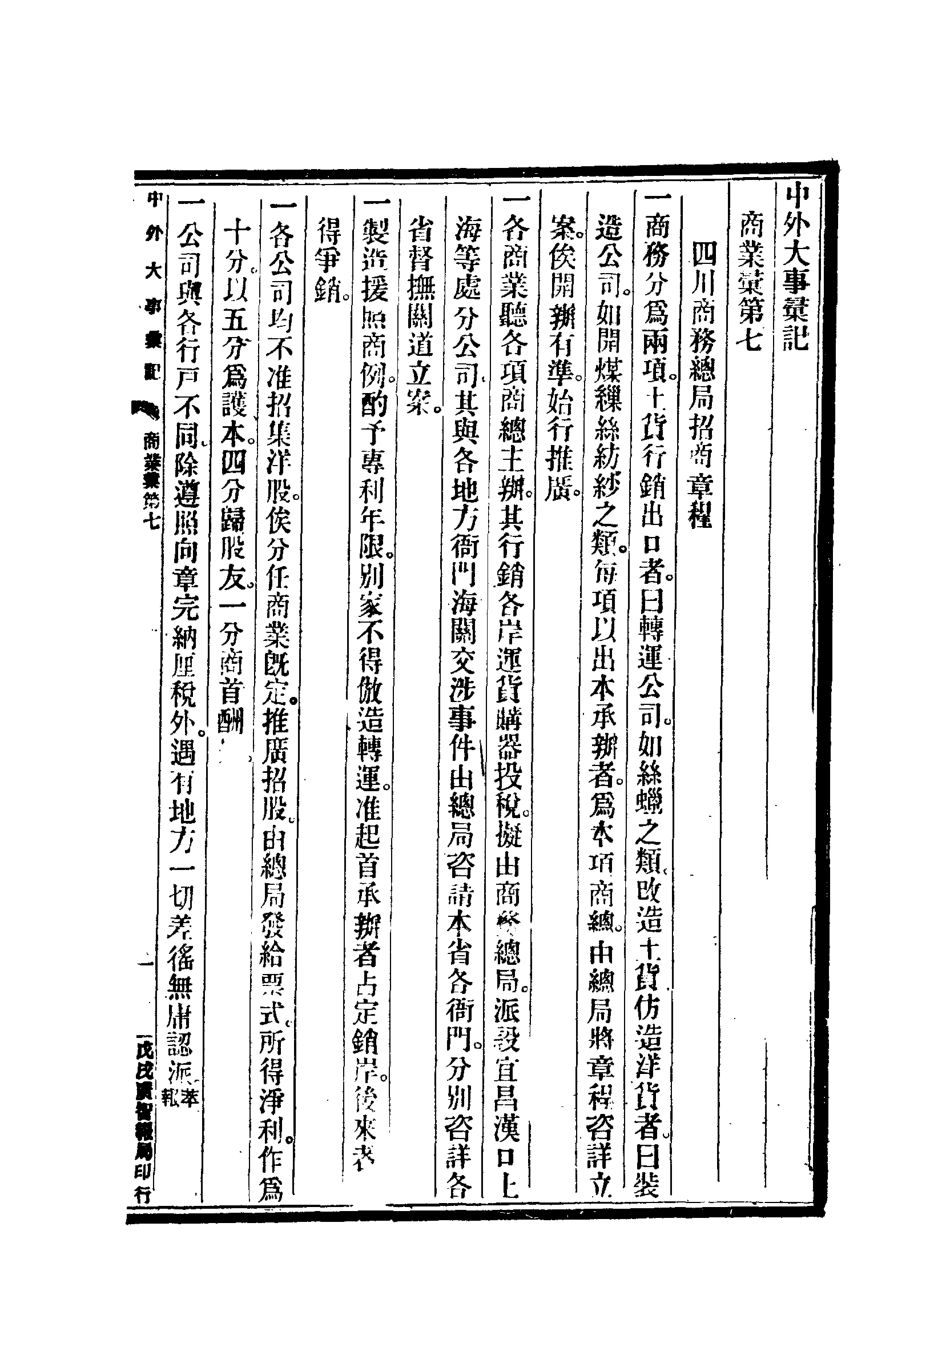 中外大事彙記
商業彙第七
四川商務總局招商章程
一商務分爲兩項土貨行銷出口者。曰轉運公司。如絲蠟之類。改造土貨仿造洋貨者。曰裝
造公司。如開煤繅絲紡紗之類。每項以出本承辦者。爲本項商總。由總局將章程咨詳立
案。俟開辦有準。始行推廣。
一各商業聽各項商總主辦。其行銷各岸運貨購器投稅。擬由商務總局。派設宜昌漢口上
海等處分公司。其與各地方衙門海關交涉事件由總局咨請本省各衙門。分別咨詳各
省督撫關道立案。
一製造援照商例。酌予專利年限。別家不得倣造轉運。准起首承辦者占定銷岸。後來者不
得爭銷。
一各公司均不准招集洋股。俟分任商業既定。推廣招股。由總局發給票式。所得淨利。作爲
十分。以五分爲護本。四分歸股友。一分商首酬
一公司與各行戶不同。除遵照向章完納厘稅外。遇有地方一切差徭無庸認派。萃報
中外大事彙記 商業彙第七 一 戊戌廣智報局印行